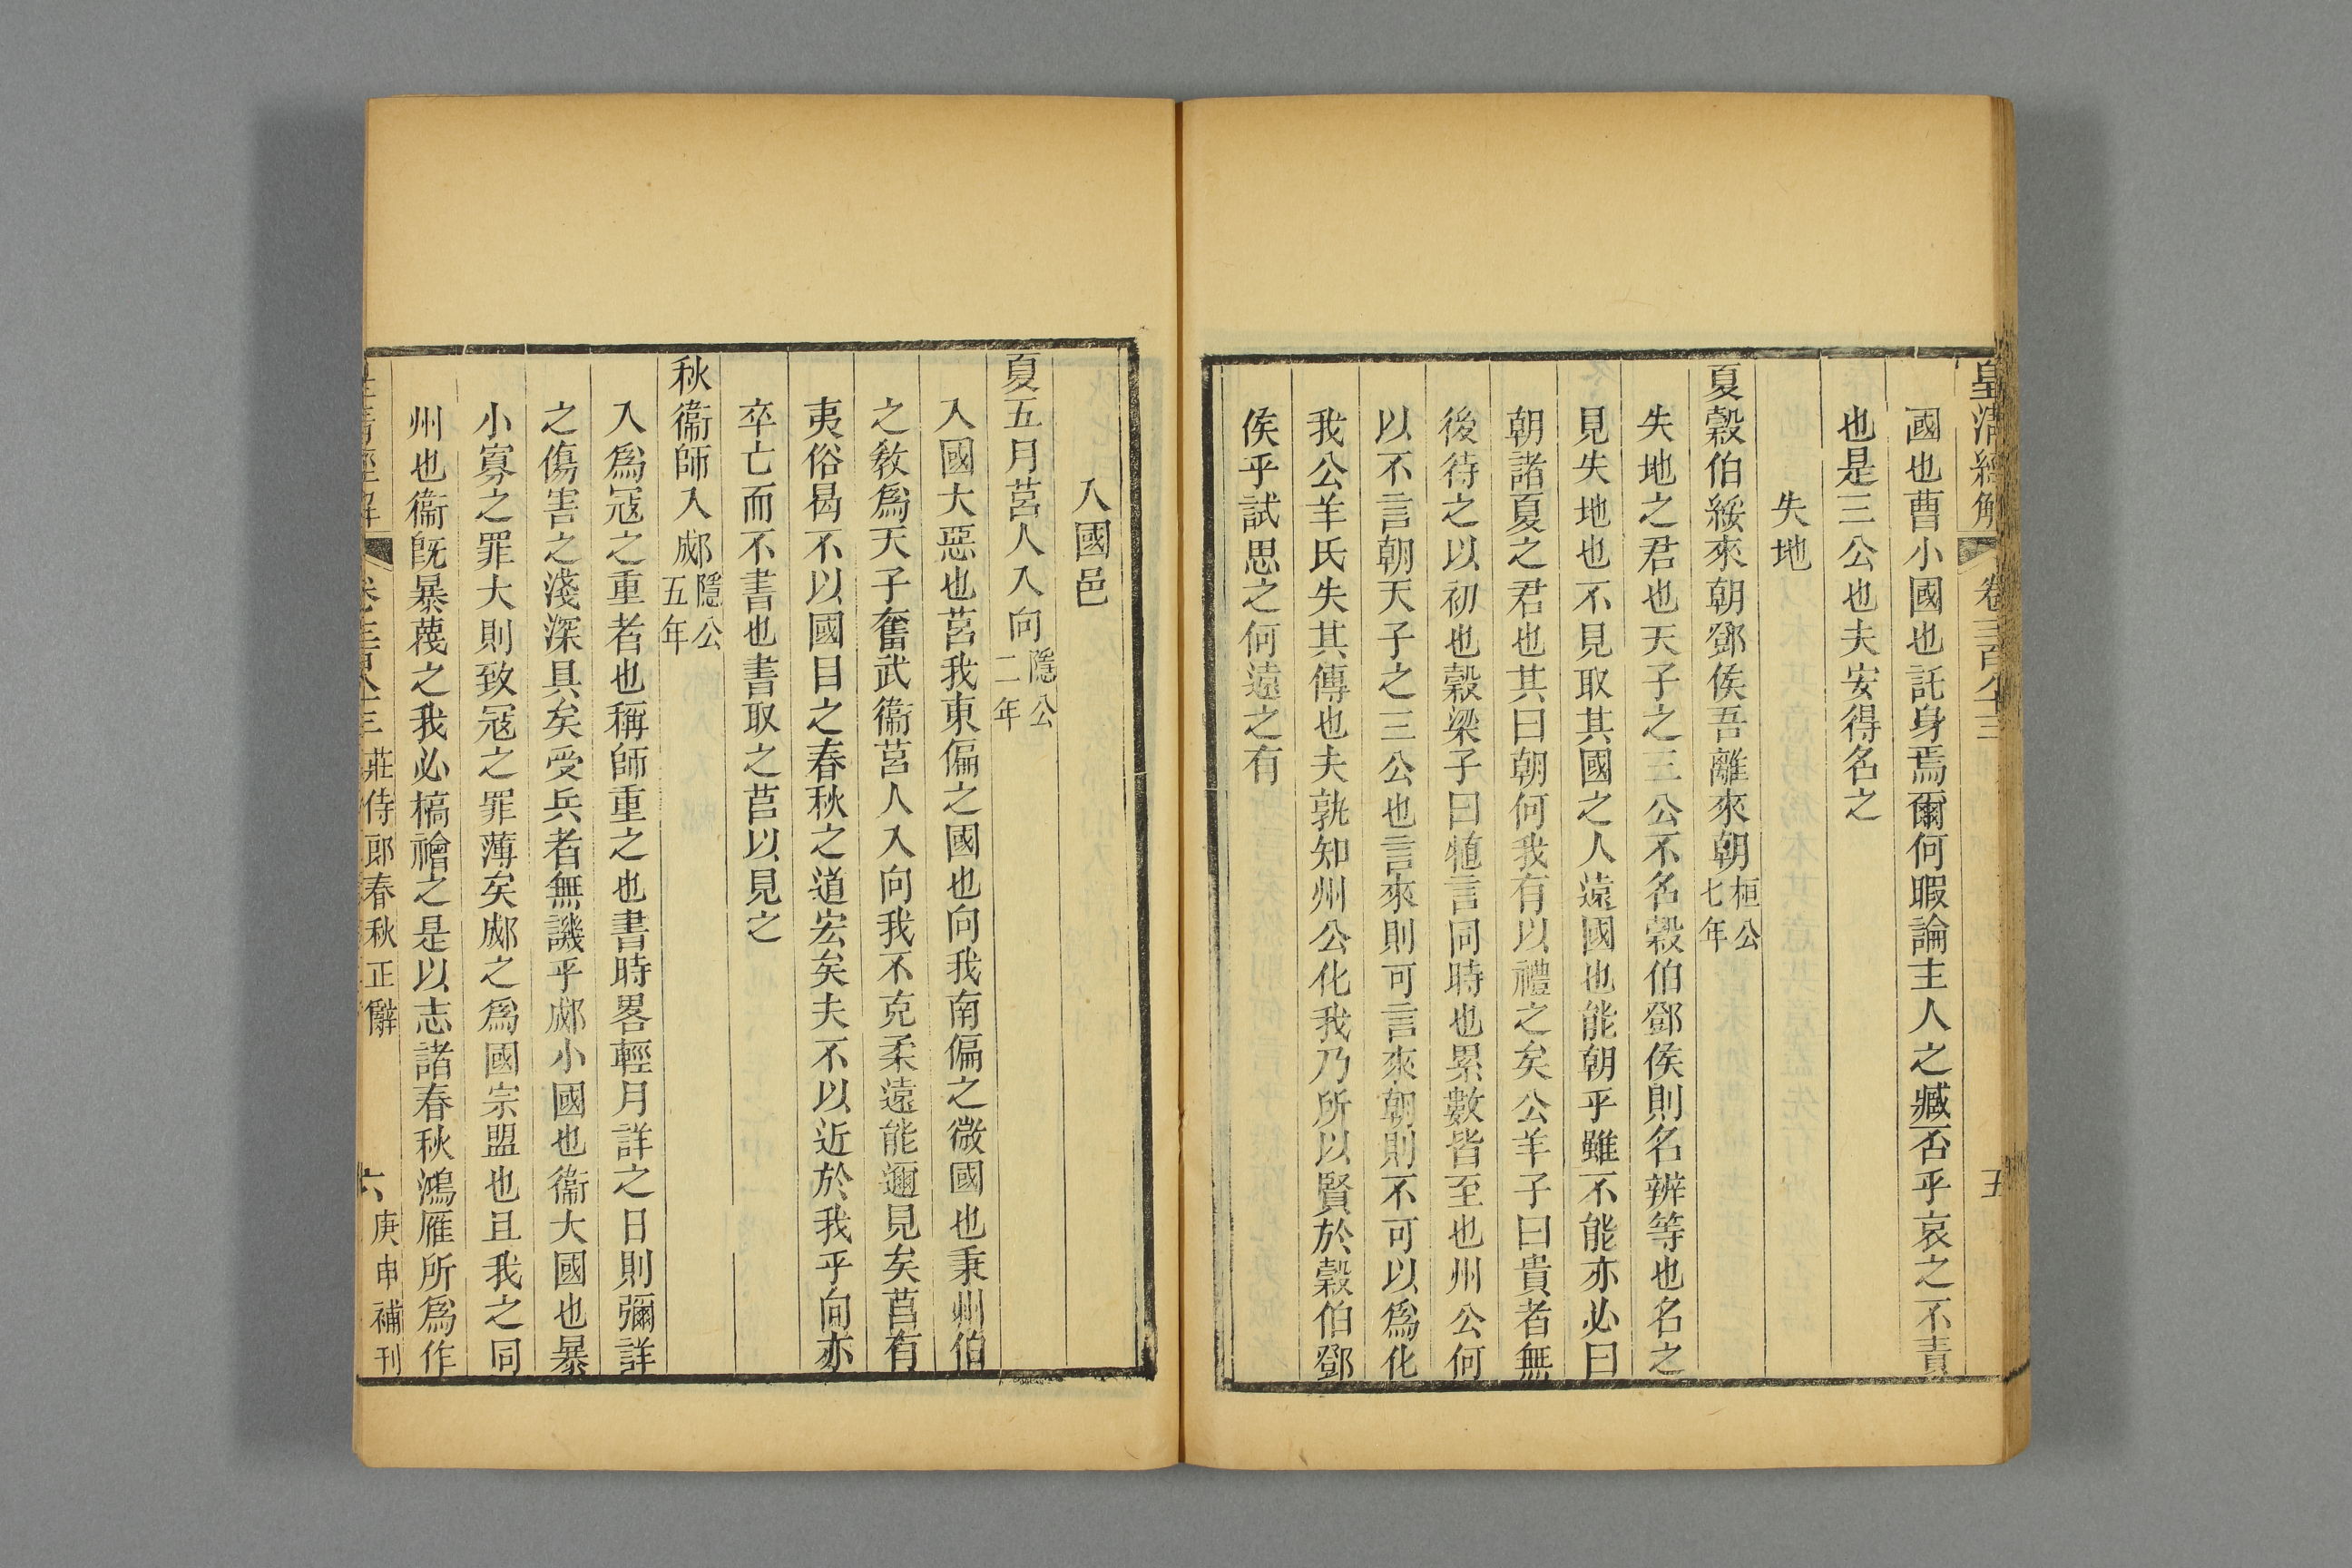 皇清經解 卷三百八十三 五
國也曹小國也託身焉爾何暇論主人之臧否乎哀之不責
也是三公也夫安得名之
失地
夏穀伯綏來朝鄧侯吾離來朝桓公七年
失地之君也天子之三公不名穀伯鄧侯則名辨等也名之
見失地也不見取其國之人遠國也能朝乎雖不能亦必曰
朝諸夏之君也其曰朝何我有以禮之矣公羊子曰貴者無
後待之以初也穀梁子曰猶言同時也累數皆至也州公何
以不言朝天子之三公也言來則可言來朝則不可以爲化
我公羊氏失其傳也夫孰知州公化我乃所以賢於穀伯鄧
侯乎試思之何遠之有
入國邑
夏五月莒人入向隱公二年
入國大惡也莒我東偏之國也向我南偏之微國也秉州伯
之敎爲天子奮武衞莒人入向我不克柔遠能邇見矣莒有
夷俗曷不以國目之春秋之道宏矣夫不以近於我乎向亦
卒亡而不書也書取之莒以見之
秋衞師入郕隱公五年
入爲寇之重者也稱師重之也書時畧輕月詳之日則彌詳
之傷害之淺深具矣受兵者無譏乎郕小國也衞大國也暴
小寡之罪大則致寇之罪薄矣郕之爲國宗盟也且我之同
州也衞旣暴蔑之我必槁禬之是以志諸春秋鴻雁所爲作
皇清經解 卷三百八十三 莊侍郎春秋正辭 六 庚申補刊